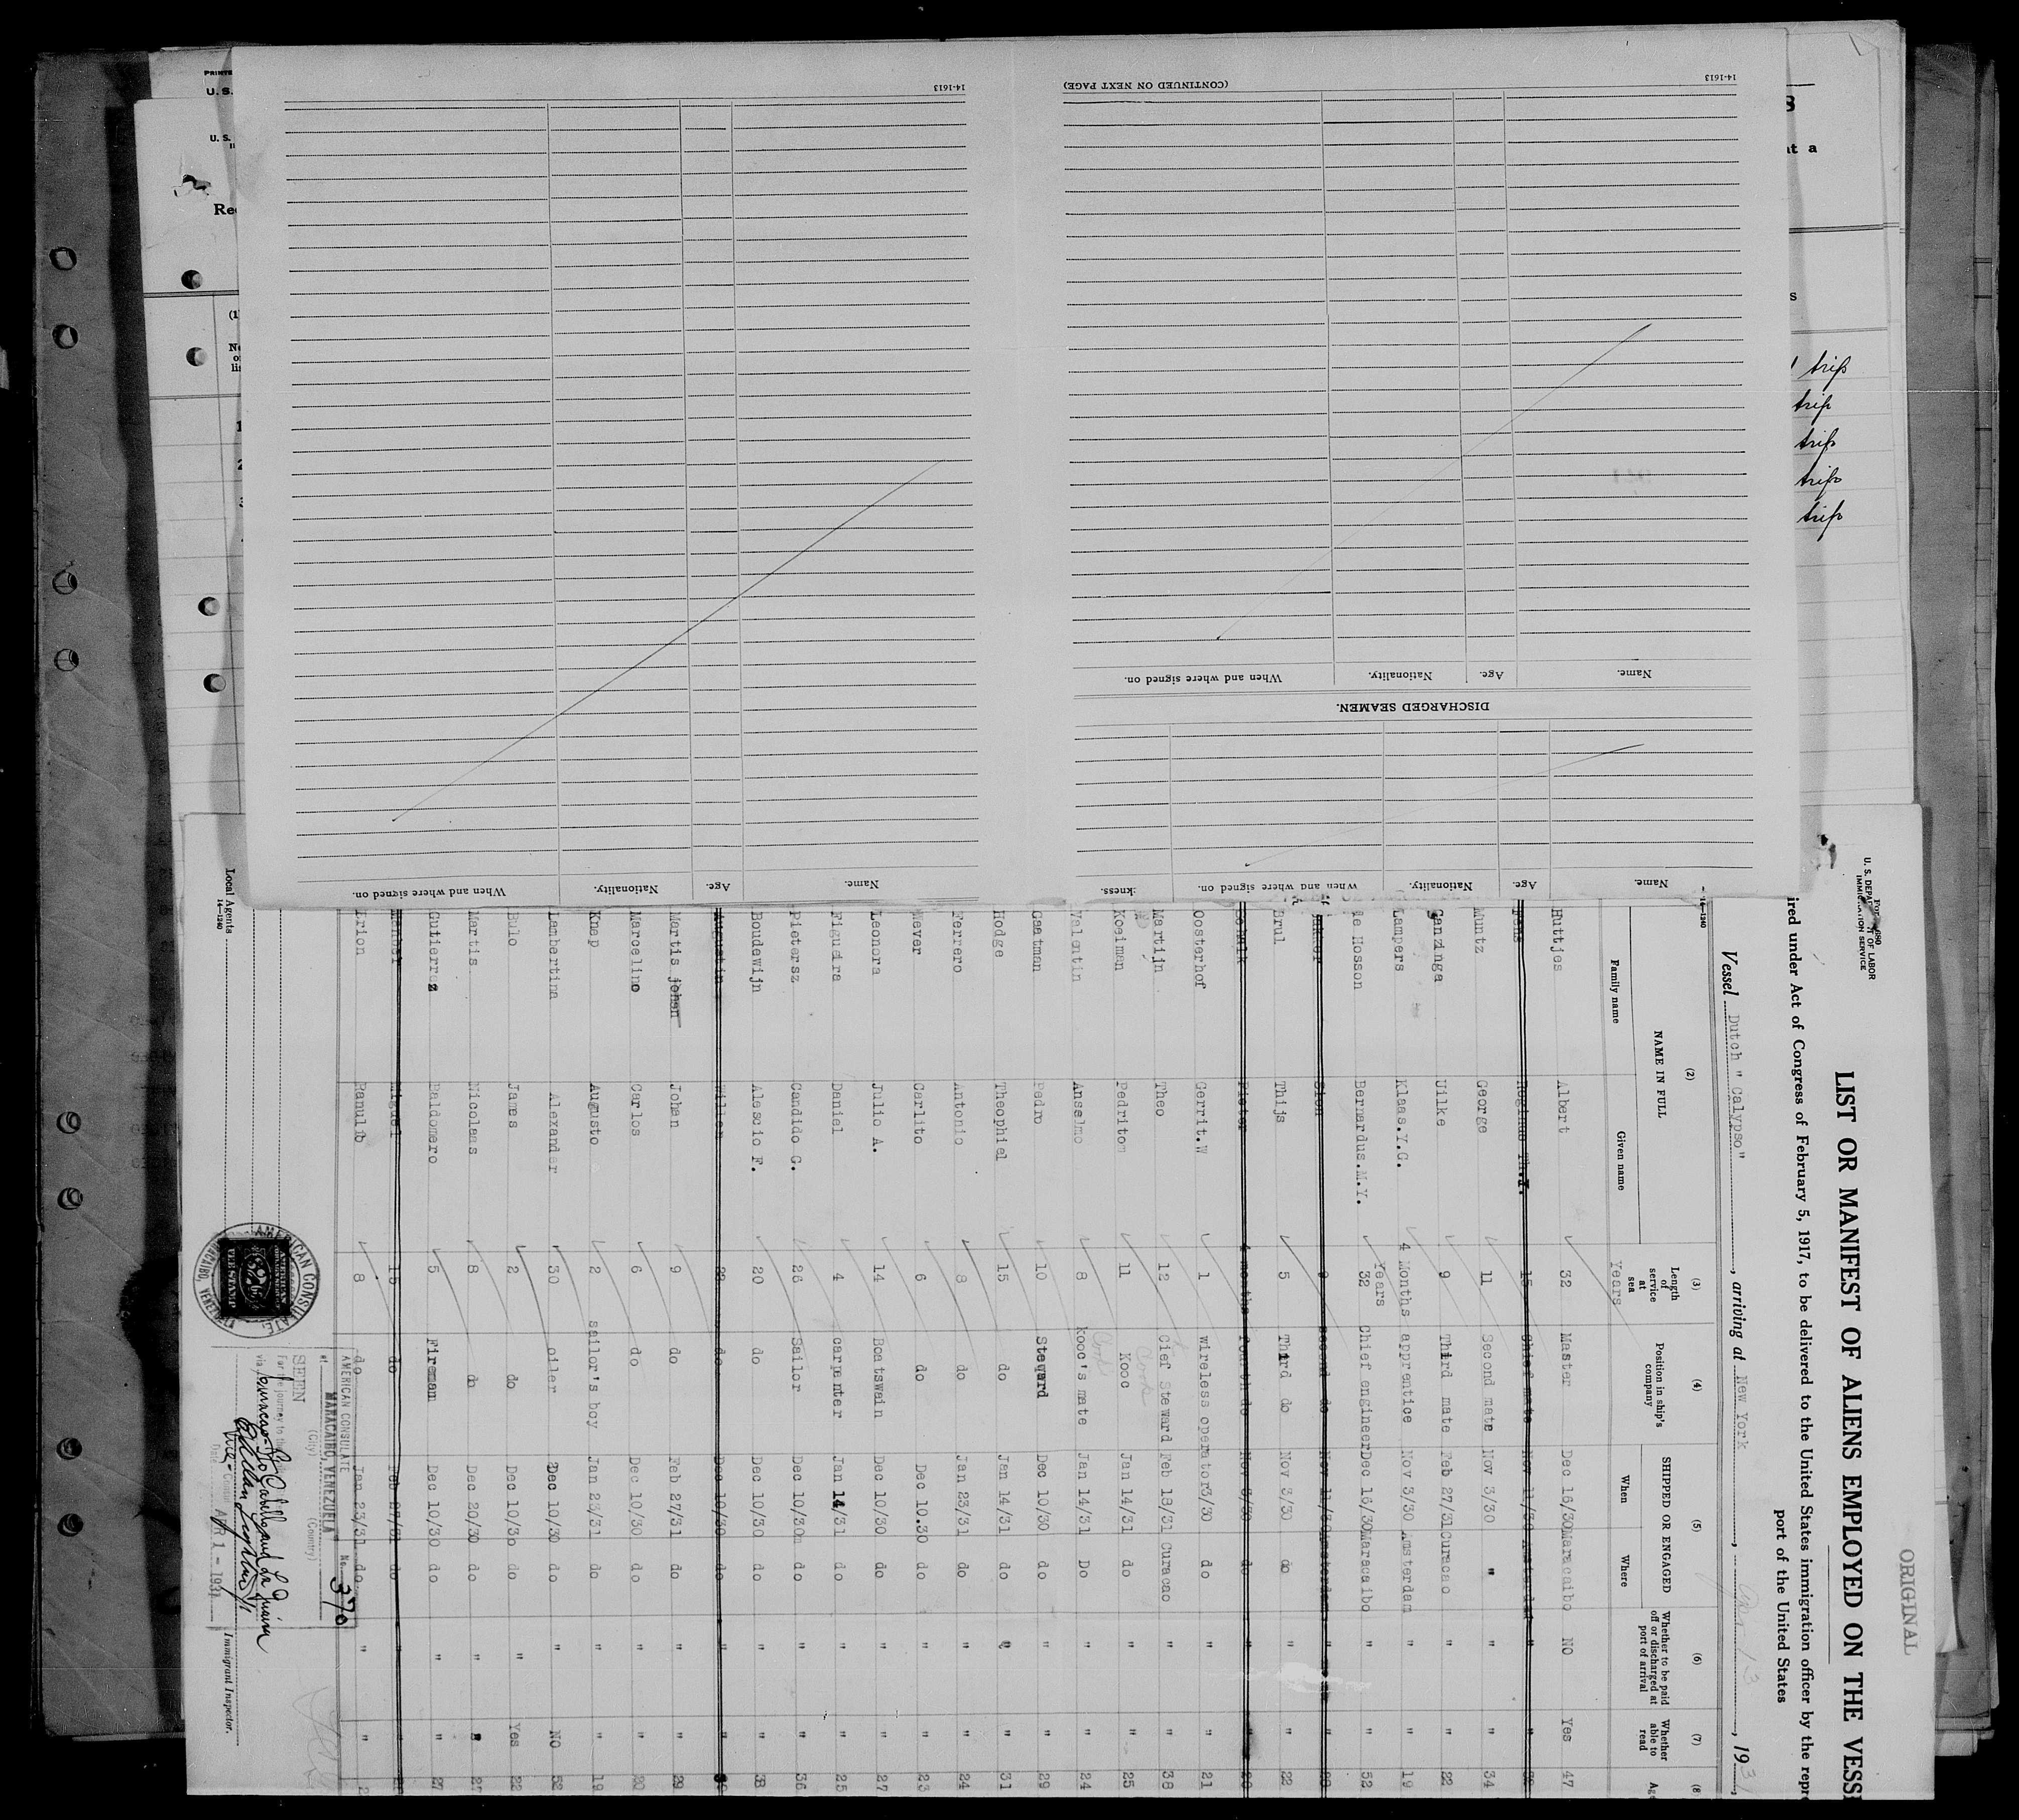 ORIGINAL
LIST OR MANIFEST OF ALIENS EMPLOYED ON THE VESS
ired under Act of Congress of February 5, 1917, to be delivered to the United States immigration officer by the repre
port of the United States
U. S. DEPA T OF LABOR
IMMIGRATION SERVICE
Vessel Dutch " Calypso" , arriving at New York , 1931
14-1240
(2) (3) (4) (5) (6) (7) (8
NAME IN FULL
Family name Given name
Length of service at sea
Position in ship's company
SHIPPED OR ENGAGED
When Where
Whether to be paid off or discharged at port of arrival
Whether able to read
Ag
Years
Huttjes Albert 32 Master Dec 16/30 Maracaibo NO Yes 47
Reginus Th.Y. 15 Chief mate Nov 11/30 Amsterdam " "
Muntz George 11 Second mate Nov 3/30 " " " 34
Canzinga Uilke 9 Third mate Feb 27/31 Curacao " " 22
Lampers Klaas.Y.G. 4 Months apprentice Nov 3/30 Amsterdam " " 19
Years
de Hosson Bernardus.M.Y. 32 Chief engineer Dec 16/30 Maracaibo " " 52
9 second do Nov 11/30 Amsterdam " "
Brul Thijs 5 Third do Nov 3/30 do " " 22
Pieter 4 months fourth do Nov 3/30 do " " 20
Oosterhof Gerrit.W 1 wireless operator 3/30 do " " 21
Martijn Theo 12 Cief Steward Feb 18/31 Curacao " " 38
Cook
Koeiman Pedriton 11 Kooc Jan 14/31 do " " 25
Cook
Valentin Anselmo 8 kooc's mate Jan 14/31 Do " " 24
Gastman Pedro 10 Steward Dec 10/30 do " " 29
Hodge Theophiel 15 do Jan 14/31 do " " 31
Ferrero Antonio 8 do Jan 23/31 do " " 24
Mever Carlito 6 do Dec 10.30 do " " 23
Leonora Julio A. 14 Boatswain Dec 10/30 do " " 27
Figueira Daniel 4 carpenter Jan 14/31 do " " 25
Pietersz Candido G. 26 Sailor Dec 10/30 do " " 36
Boudewijn Alescio F. 20 do Dec 10/30 do " " 38
Augustin do Dec 10/30 do " "
Martis johan Johan 9 do Feb 27/31 do " " 29
Marcelino Carlos 6 do Dec 10/30 do " " 20
Knap Augusto 2 sailor's boy Jan 23/31 do " " 19
Lambertina Alexander 30 oiler Dec 10/30 do " NO 52
Bulo James 2 do Dec 10/30 do " Yes 22
Martis Nicolaas 8 do Dec 20/30 do " " 27
Gulierrez Baldomero 5 Fireman Dec 10/30 do " " 27
Miguel 15 do Feb 27/31 do " "
Irion Ranulio 8 do Jan 23/31 do " " 2
AMERICAN CONSULATE
at MARACAIBO, VENEZUELA No. 370
(City) (Country)
SEEN
For the journey to the
via
Date APR 1 - 1931
AMERICAN CONSULATE
MARACAIBO, VENEZUELA
Local Agents
14-1240
Immigrant Inspector.
DISCHARGED SEAMEN.
Name. Age. Nationality. When and where signed on.
Name. Age. Nationality. When and where signed on. kness.
Name. Age. Nationality. When and where signed on.
(CONTINUED ON NEXT PAGE)
14-1613
14-1613
PRINTE
U. S.
U. S.
Re
(1)
at a
trip
trip
trip
trip
trip